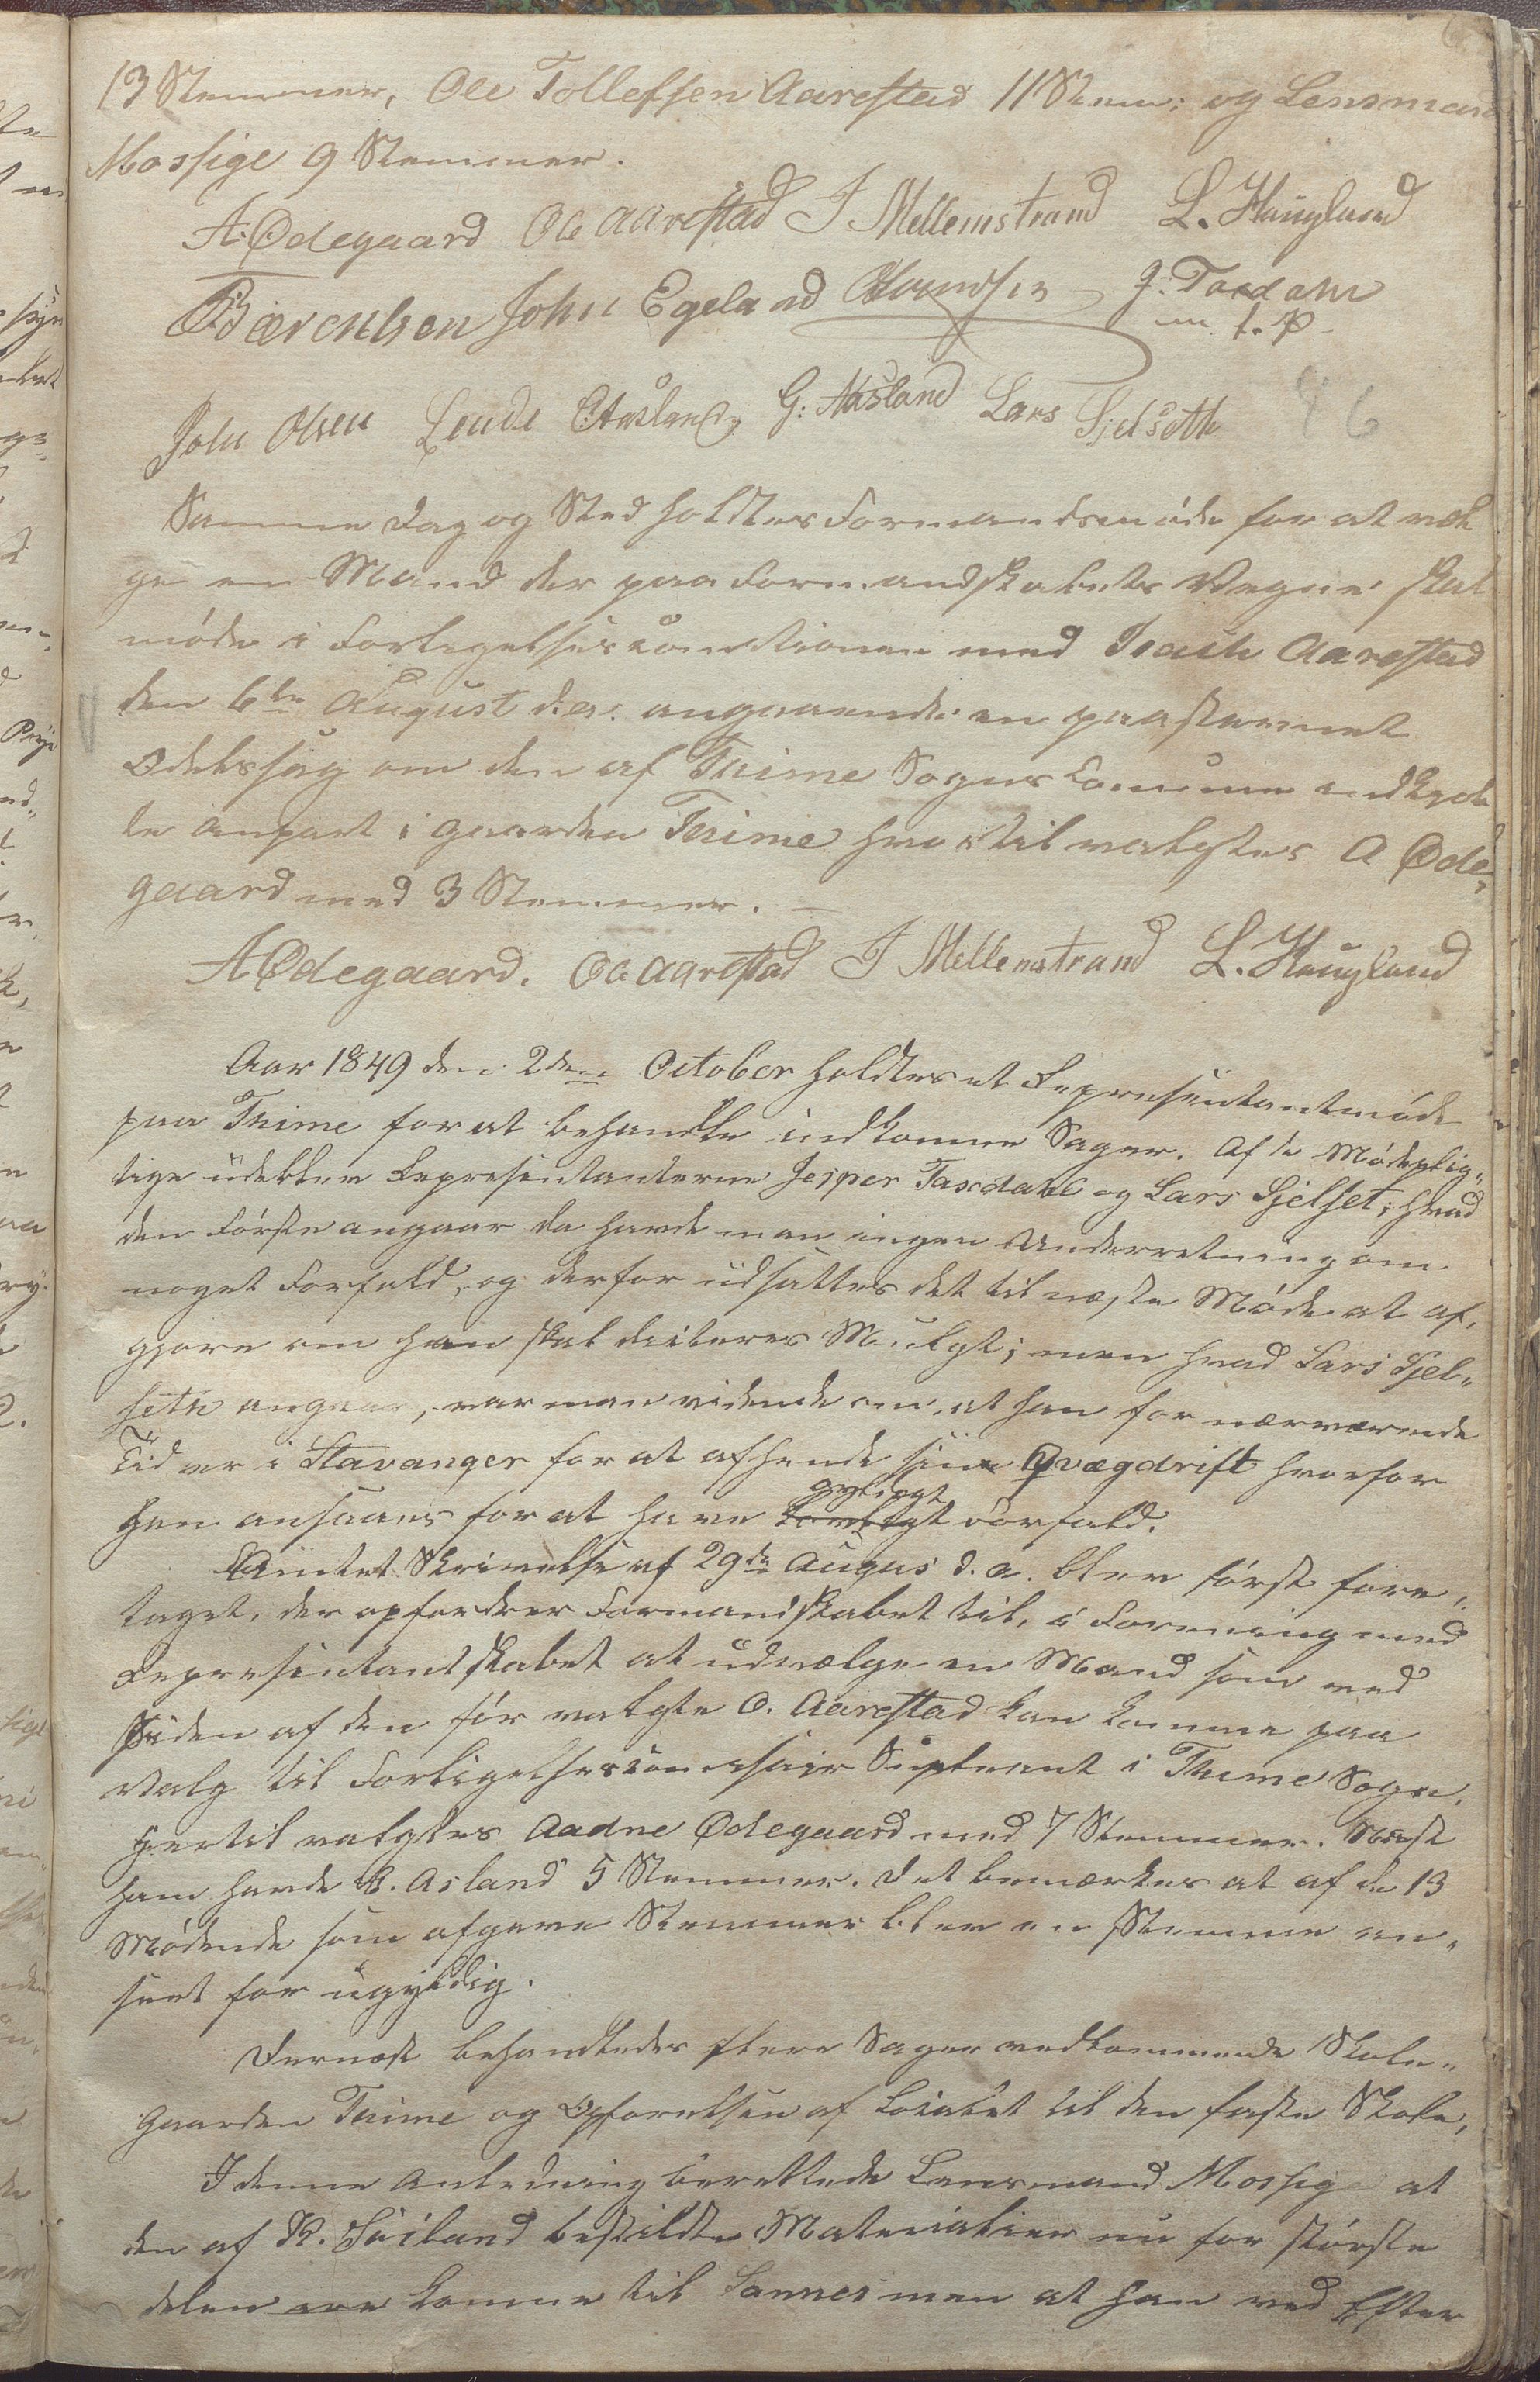 13 Stemmer, Ole Tollefsen Aarestad 11 Stem: og Lensmand
Mossige 9 Stemmer.
A. Ødegaard Ole Aarestad J. Mellemstrand L. Haugland
Bærentsen John Egeland J. Taxdahl
m. f. P.
John Olsen Lende O Aasland G: Aasland Lars Sjelseth
46
Samme Dag og Sted holdtes Formandsmøde for at væl
ge en Mand der paa Formandskabets Vegne skal
møde i Forligelsescommisionen med Isach Aarestad
den 6te August d.a. angaaende en paastævnet
Odelssag om den af Thime Sogns Commune indkjøb
te Anpart i Gaarden Thime hvortil valgtes A Øde„
gaard med 3 Stemmer. –
A Ødegaard. Ole Aarestad J Mellemstrand L. Haugland
Aar 1849 den 2den October holdtes et Repræsentantmøde
paa Thime for at behandle indkomne Sager. Af de Mødeplig„
tige udebleve Repræsentanterne Jesper Taxdahl og Lars Sjelset; hvad
den Første angaar da havde man ingen Underretning om
noget Forfald, og derfor udsattes det til næste Møde at af„
gjøre om han skal ilæges Mulgt; men hvad Lars Sjel„
seth angaar, var man vidende om, at han for nærværende
Tid er i Stavanger for at afhende sin Qvægdrift hvorfor
gyldigt
han ansaaes for at have lovligt Forfald.
Amtets Skrivelse af 29de Augus d.a. blev først fore„
taget, der opfordrer Formandskabet til, i Forening med
Repræsentantskabet at udvælge en Mand som ved
Siden af den før valgte O. Aarestad kan komme paa
Valg til Forligelsescommisair Suppleant i Thime Sogn.
Hertil valgtes Aadne Ødegaard med 7 Stemmer. Næst
ham havde O. Asland 5 Stemmer. Det bemærkes at af de 13
Mødende som afgave Stemmer blev en Stemme an„
seet for ugyldig.
Dernæst behandledes flere Sager vedkommende Skole„
gaarden Thime og Opførelsen af Localet til den faste Skole,
I denne Anledning berettede Lensmand Mossige at
den af R. Soiland bestildte Materialier nu for største
delen ere komne til Sannes men at han ved Efter